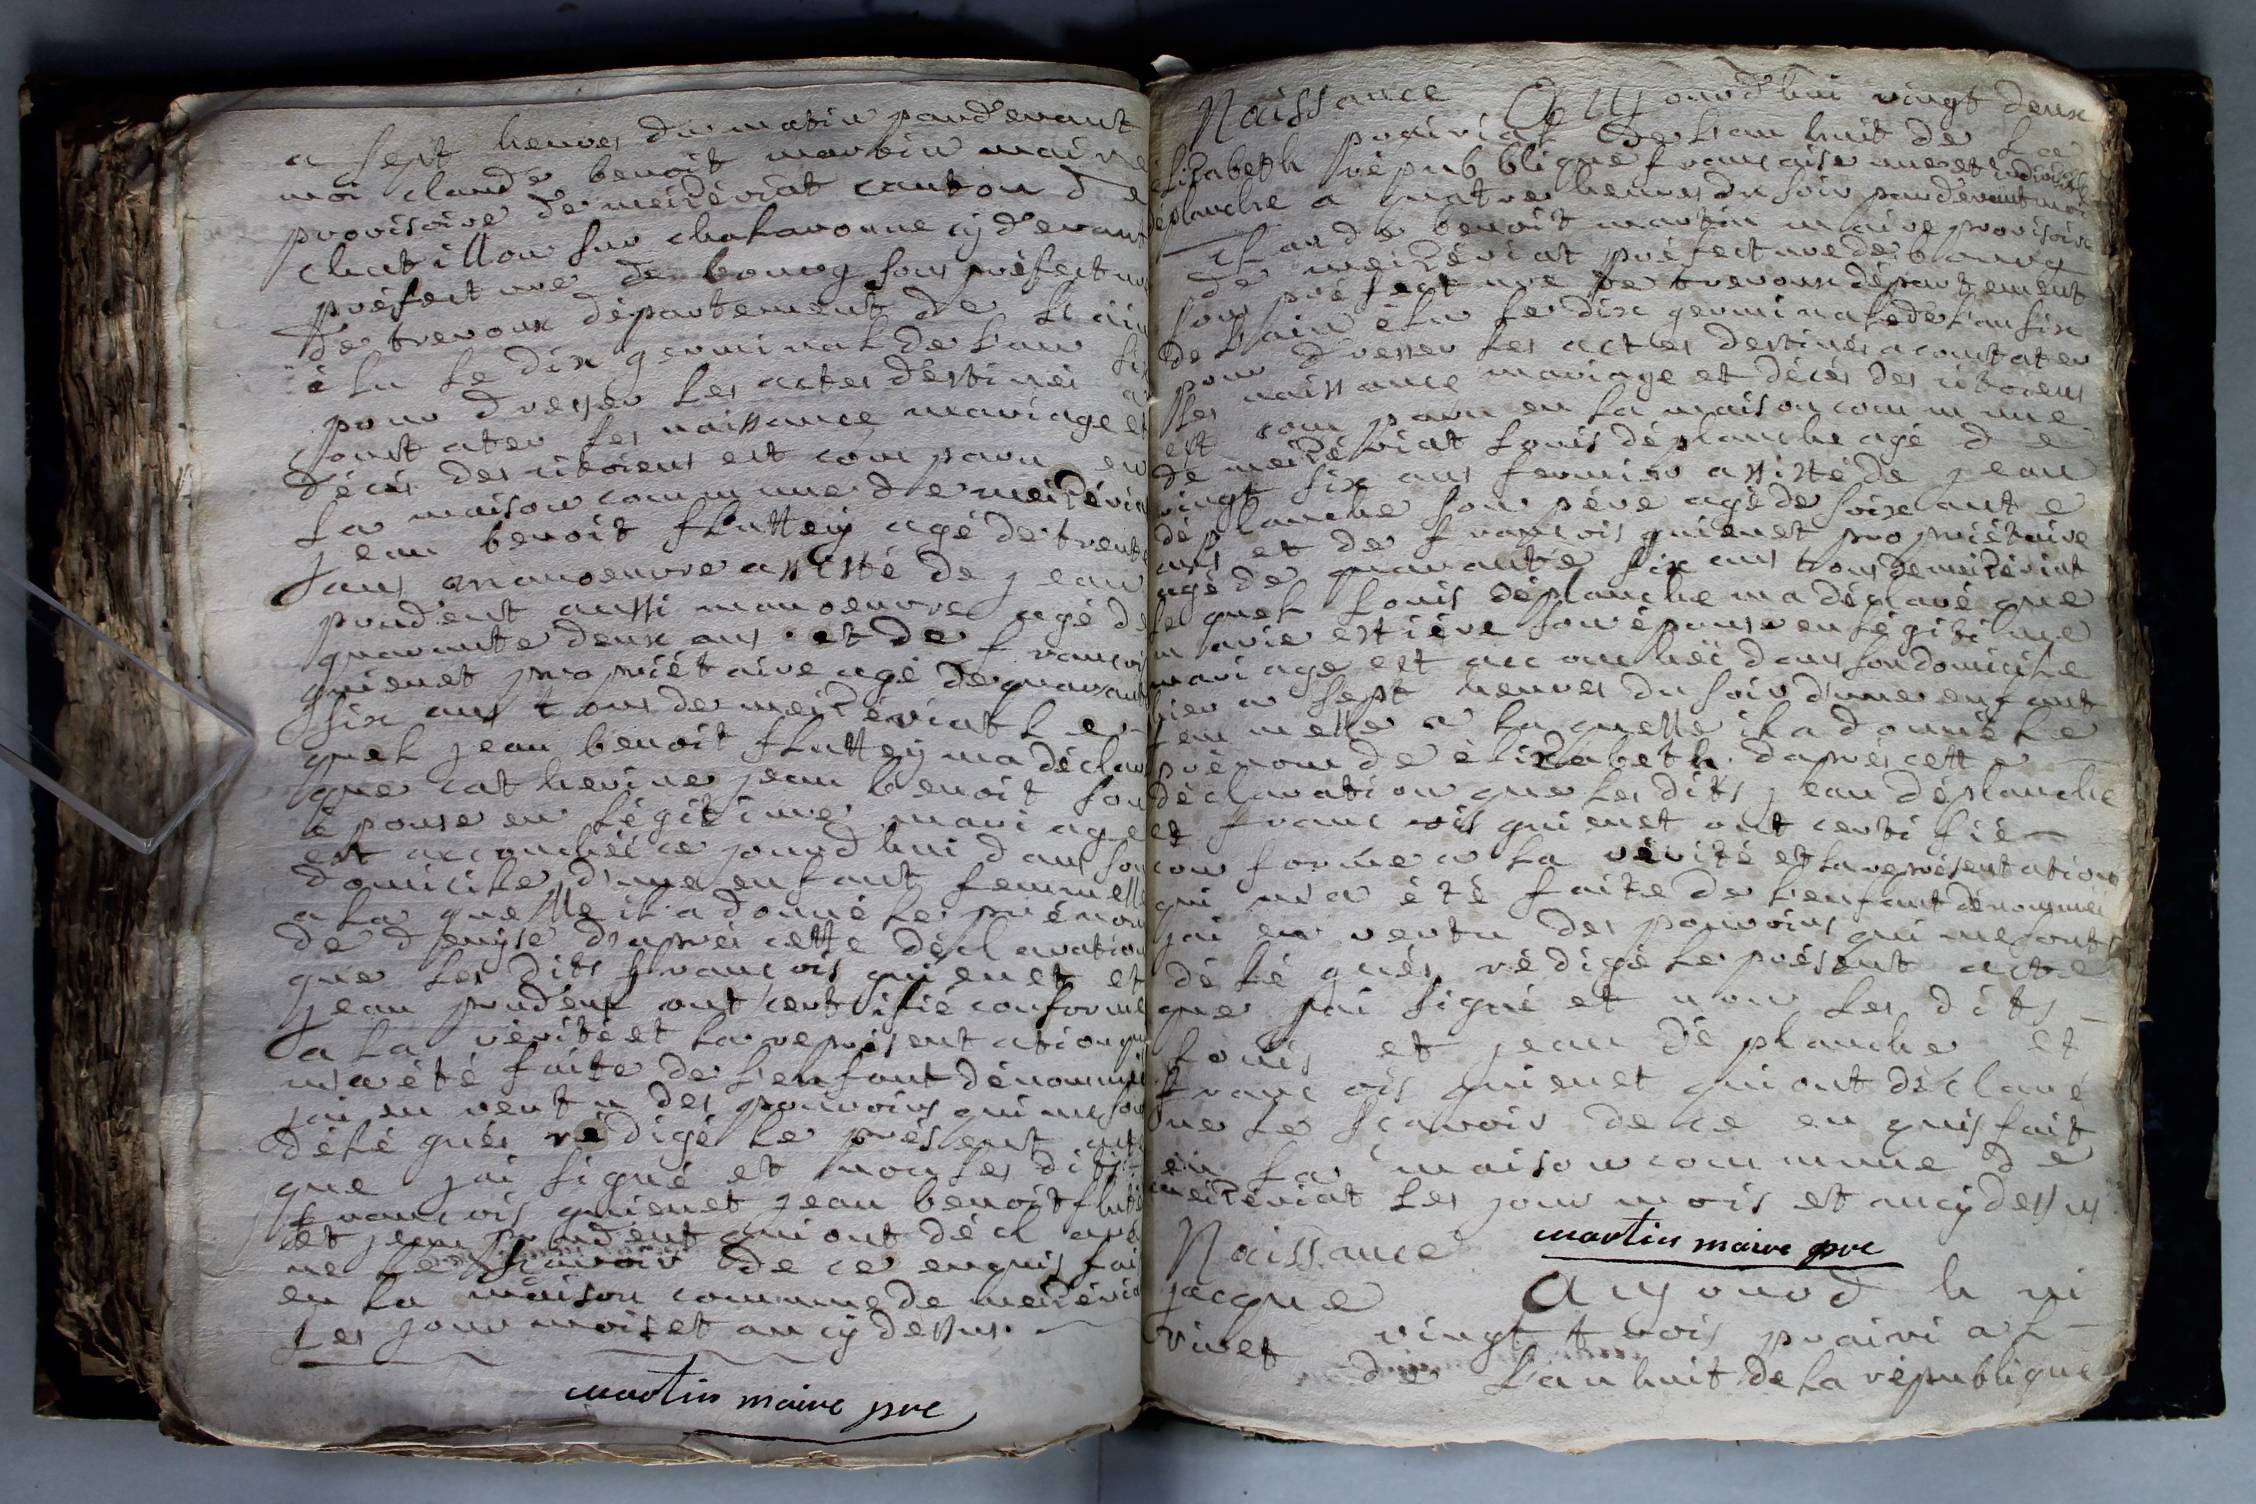 a sept heures du matin pardevant
moi claude benoit martin maire
provisoire de meizériat canton de
chatillon sur chalaronne cy devant
préfecture de bourg sous préfecture
de trevoux département de l'ain
élu le dix germinal de l'an six
pour dresser les actes déstinés a
constater les naissance mariage et
décès des citoiens est comparu en
la maison commune de meizéria
jean benoit fluttey agé de trente
ans manoeuvre assisté de jean
prudent aussi manoeuvre agé de
quarante deux ans et de françois
guienet propriétaire agé de quarante
six ans tous de meizériat le
quel jean benoit fluttey ma déclaré
que catherine jean benoit son
épouse en légitime mariage
est accouchéé ce jourdhui dans son
domicile d'une enfant femmelle
a la quelle il a donné le prénom
de denyse d'aprés cette déclaration
que les dits françois guienet et
jean prudent ont certifié conforme
a la vérité et la représentation qui
m'a été faite de l'enfant dénommée
jai en vertu des pouvoirs qui me son
délégués rédigé le présent acte
que jai signé et non les dits
françois guienet jean benoit flute
et jean prudent qui ont déclaré
ne le scavoir de ce enquis fai
en la maison commune de meizéria
les jour mois et an cy dessus.
martin maire pre
Naissance Aujourdhui vingt deux
prairial de l'an huit de la
elizabeth républiqué française une et indivisible
déplanche a quatre heures du soir pardevant moi
claude benoit martin maire provisoire
de meizériat préfecture de bourg
sous préfecture de trevoux département
de l'ain élu le dix germinal de l'an six
pour dresser les actes destinés a constater
les naissance mariage et décès des citoiens
est comparu en la maison commune
de meizériat louis déplanche agé de
vingt six ans fermier assisté de jean
déplanche son père agé de soixante
ans et de françois guienet propriétaire
agé de quarante six ans tous de meizériat
le quel louis déplanche ma déclaré que
marie estiève son épouse en légitime
mariage est accouchéé dans son domicile
hier a sept heures du soir d'une enfant
femmelle a la quelle il a donné le
prénom de élizabeth. daprés cette
déclaration que les dits jean déplanche
et françois guienet ont certifié
conforme a la vérité et la représentation
qui m'a été faite de l'enfant dénommée
jai en vertu des pouvoirs qui me sont
délégués rédigé le présent acte
que jai signé et non les dits
louis et jean déplanche et
françois guienet qui ont déclaré
ne le scavoir de ce enquis fait
en la maison commune de
meizériat les jour mois et an cy dessus
martin maire pre
Naissance
jacque Aujourdhui
vivet vingt trois prairial
de l'an huit de la république